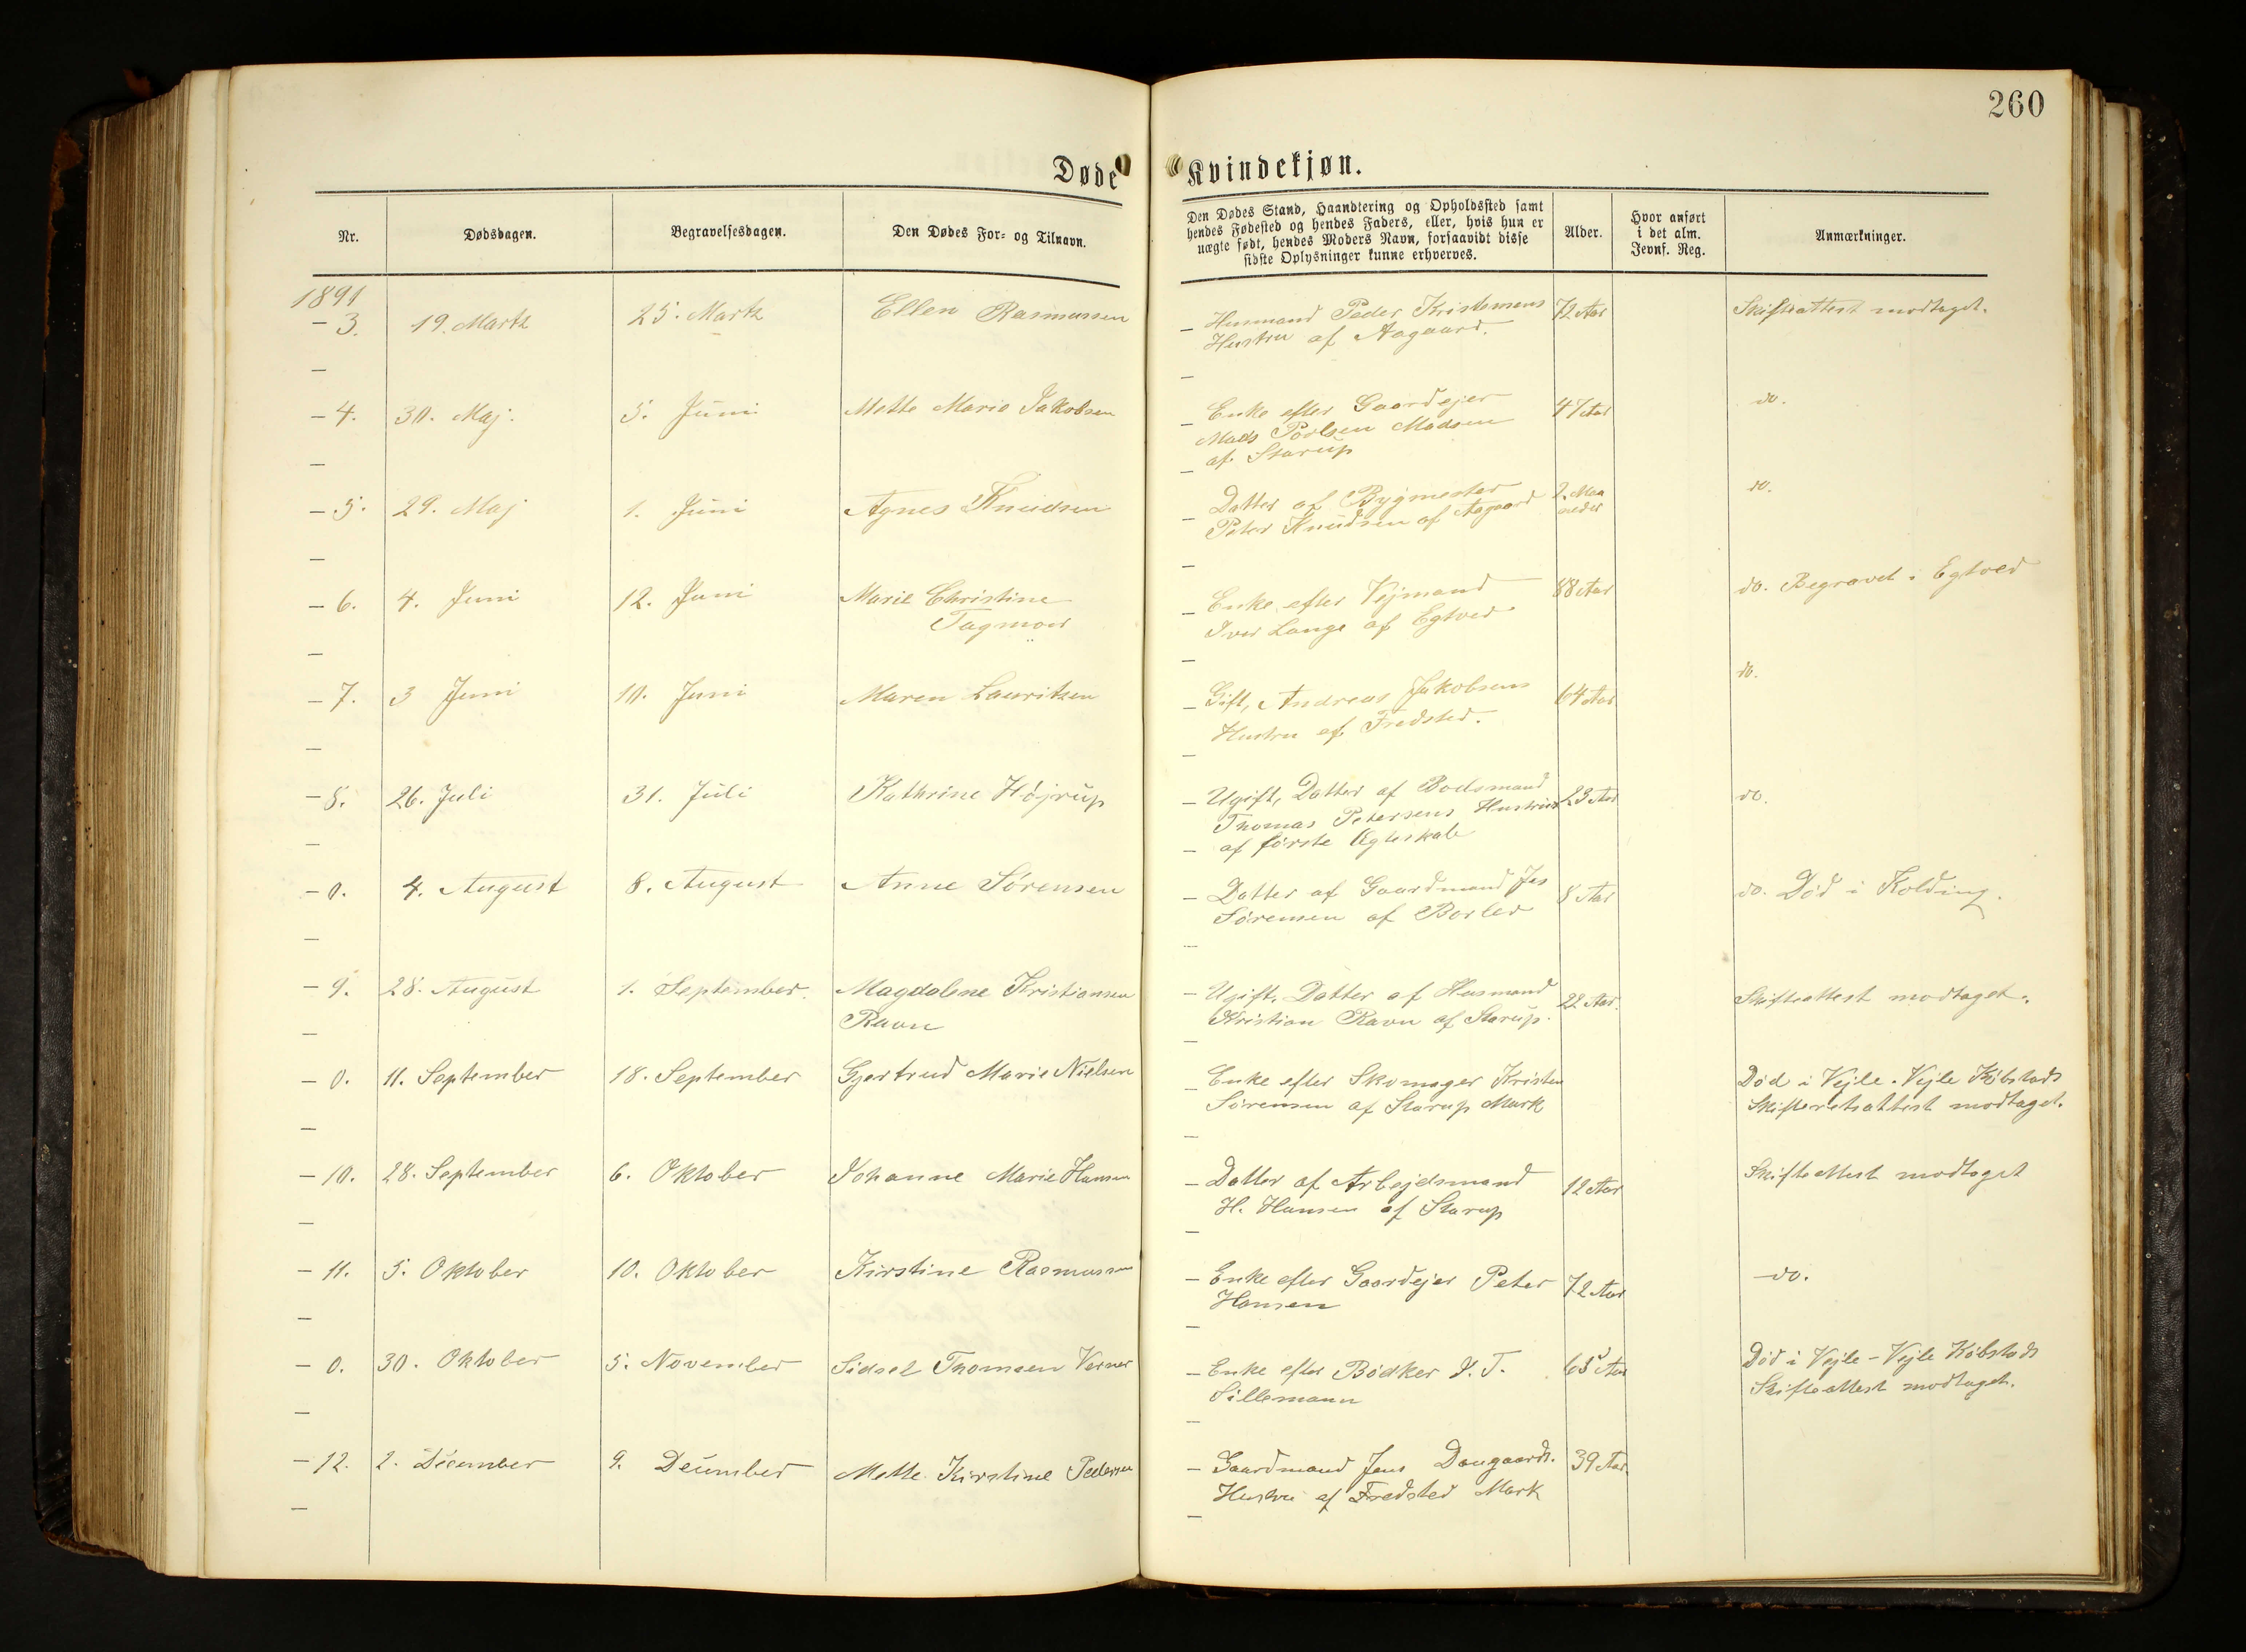 260
Døde Kvindekjøn.
Nr. Dødsdagen. Begravelsesdagen. Den Dødes For- og Tilnavn. Den Dødes Stand, Haandtering og Opholdssted samt
hendes Fødested og hendes Faders, eller, hvis hun er
uægte født, hendes Moders Navn, forsaavidt disse
sidste Oplysninger kunne erhverves. Alder. Hvor anført
i det alm.
Jevnf. Reg. Anmærkninger.
1891
– 3. 19. Marts 25. Marts Ellen Rasmussen – Husmand Peder Kristensens 72 Aar Skifteattest modtaget.
Hustru af Aagaard.
– 4. 30. Maj. 5. Juni Mette Marie Jakobsen – Enke efter Gaardejer 47 Aar do.
Mads Poulsen Madsen
af Starup
– 5. 29. Maj 1. Juni Agnes Knudsen – Datter af Bygmester 2. Maa do.
Peter Knudsen af Aagaard neder
– 6. 4. Juni 12. Juni Marie Christine – Enke efter Vejmand 88 Aar do. Begravet i Egtved
Iver Lange af Egtved
– 7. 3 Juni 10. Juni Maren Lauritsen – Gift, Andreas Jakobsens 64 Aar do.
Hustru af Fredsted.
– 8. 26. Juli 31. Juli Kathrine Højrup – Ugift, Datter af Bodsmand 23 Aar do.
Thomas Petersens Hustrus
– af første Ægteskab
– 0. 4. August 8. August Anne Sørensen – Datter af Gaardmand Jes 8 Aar do. Død i Kolding.
Sørensen af Borlev
– 9. 28. August 1. September. Magdalene Kristiansen – Ugift, Datter af Husmand 22 Aar. Skifteattest modtaget.
Ravn Kristian Ravn af Starup.
– 0. 11. September 18. September Gjertrud Marie Nielsen – Enke efter Skomager Kristen Død i Vejle. Vejle Købstads
Sørensen af Starup Mark Skifteretsattest modtaget.
– 10. 28. September 6. Oktober Johanne Marie Hansen – Datter af Arbejdsmand 12 Aar Skifteattest modtaget
H. Hansen af Starup
– 11. 5. Oktober 10. Oktober Kirstine Rasmussen – Enke efter Gaardejer Peter 72 Aar – do.
Hansen
– 0. 30. Oktober 5. November Sidsel Thomsen Verner – Enke efter Bødker J. T. Aar Død i Vejle – Vejle Købstads
Sillemann Skifteattest modtaget.
– 12. 2. December 9. December Mette Kirstine Pedersen – Gaardmand Jens Daugaards. 39 Aar.
Hustru af Fredsted Mark